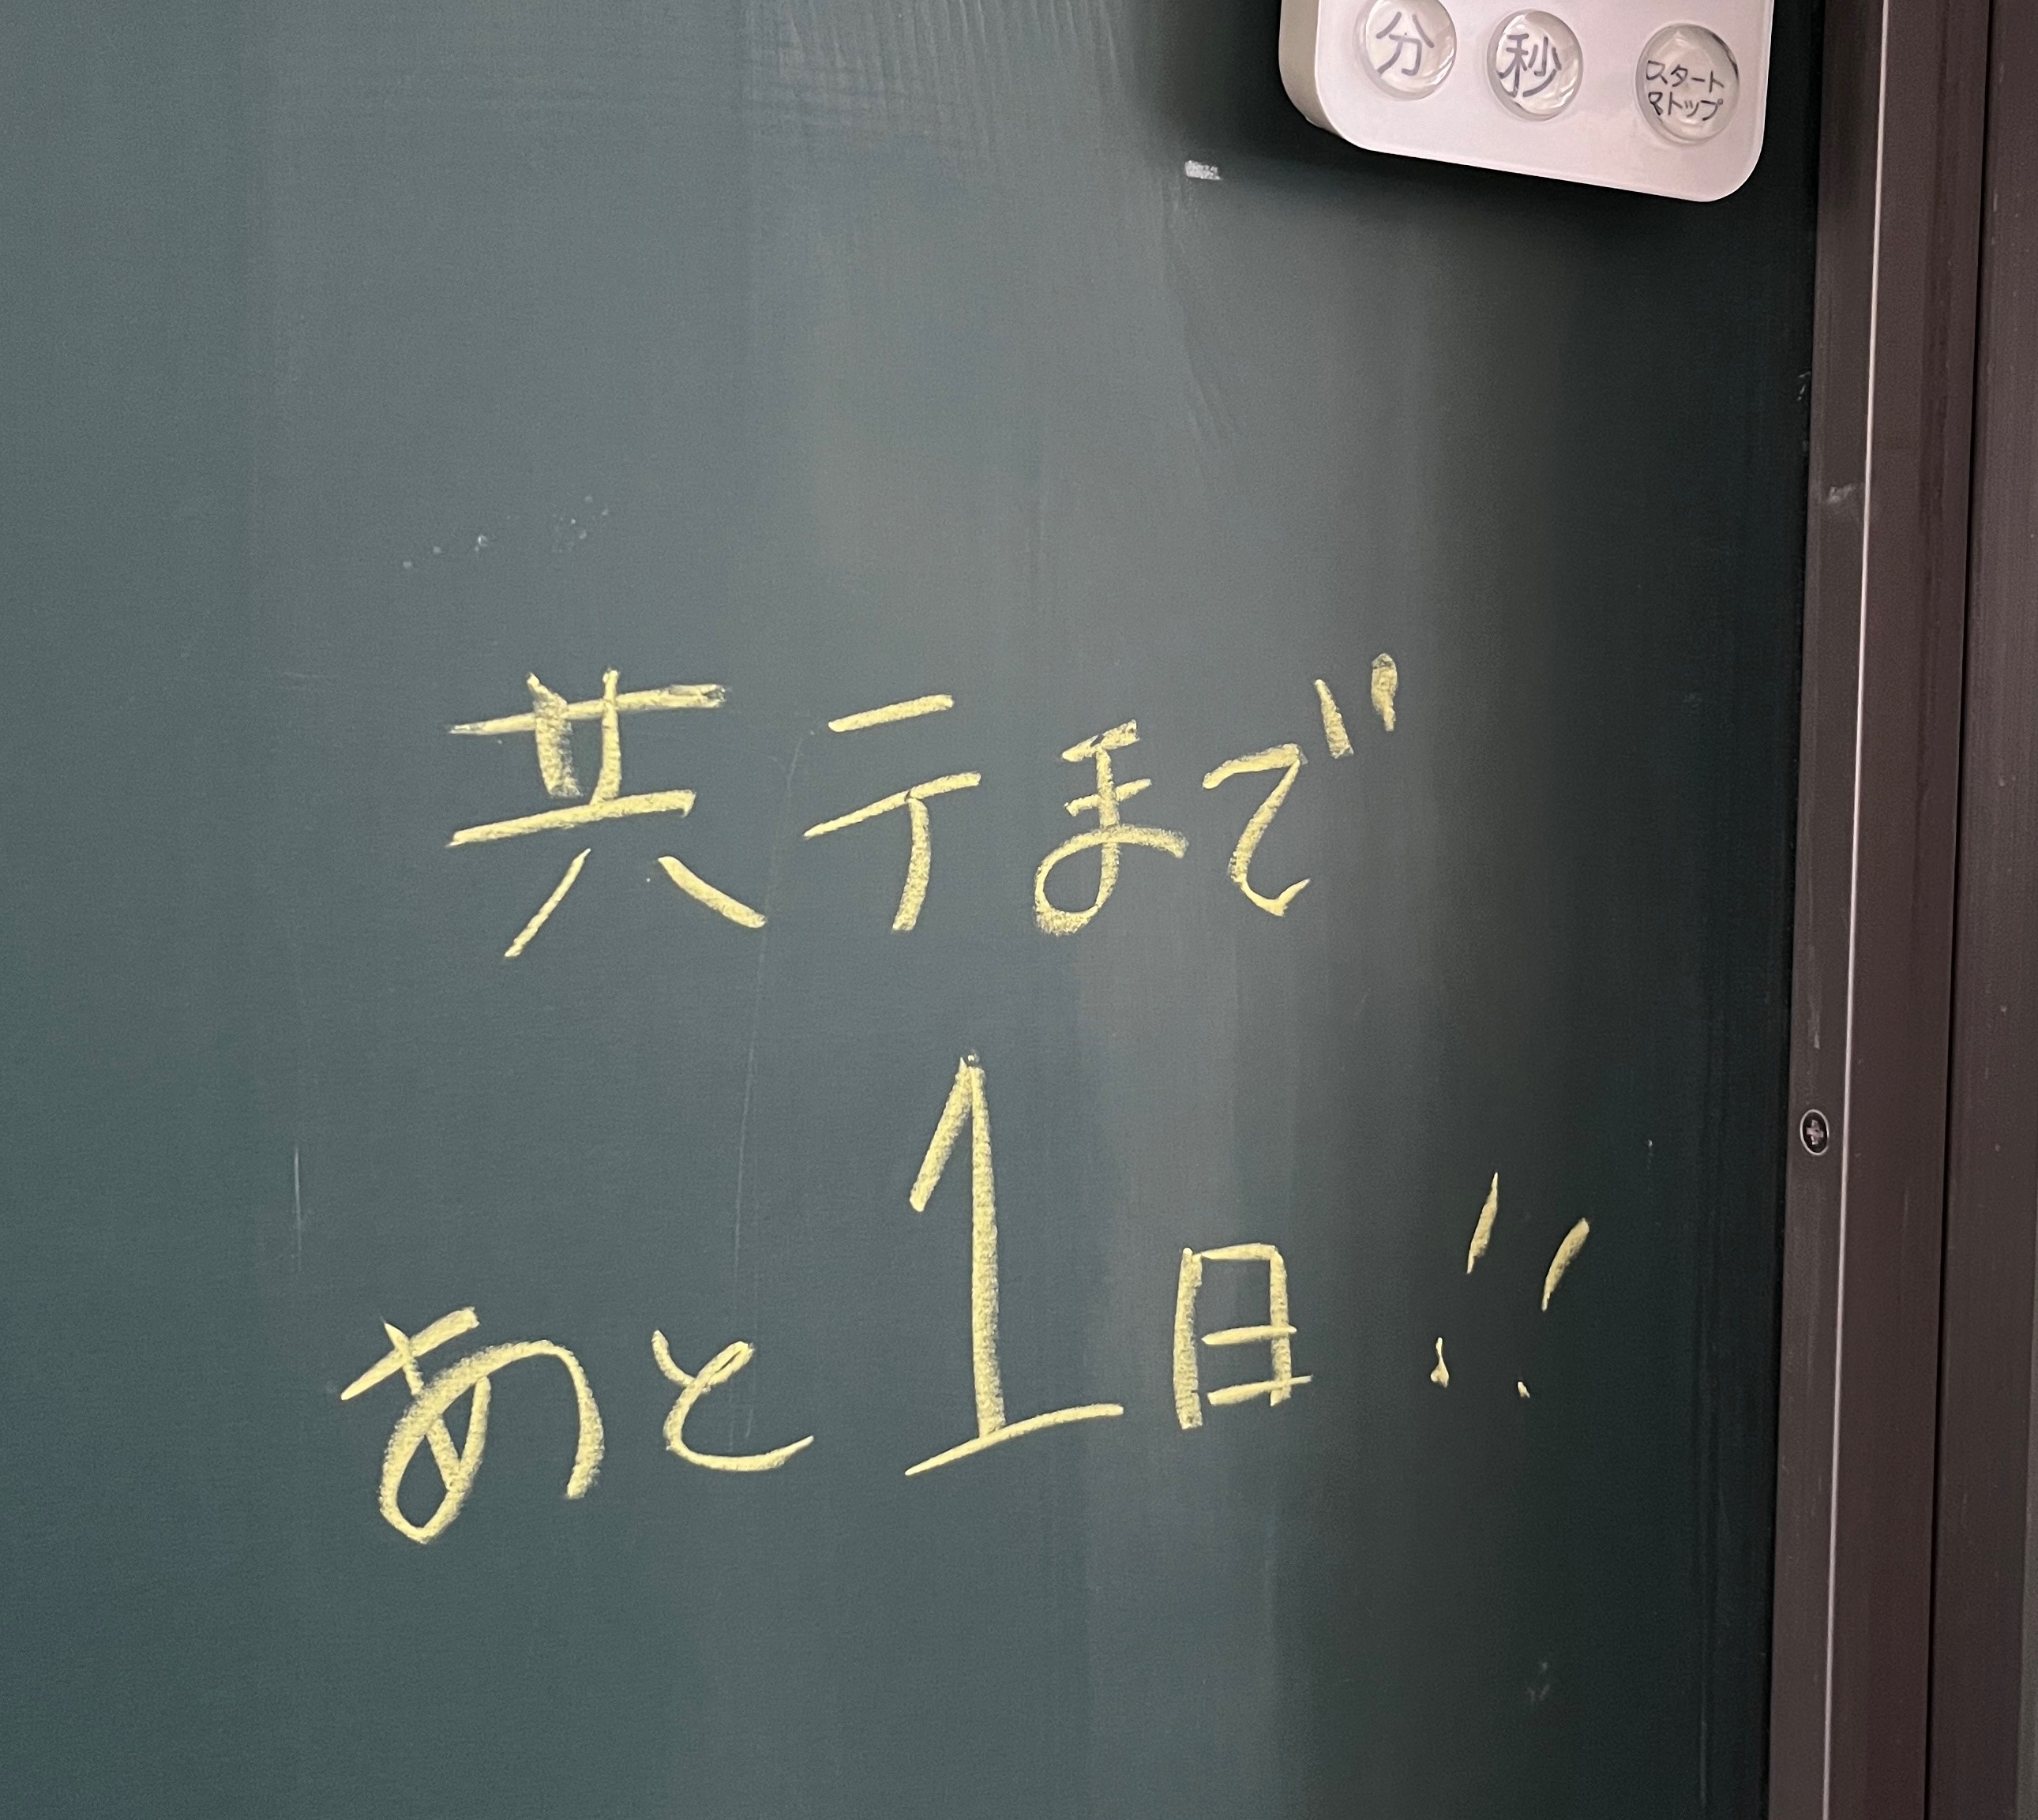 分 秒 スタート
ストップ
共テまで
あと1日!!